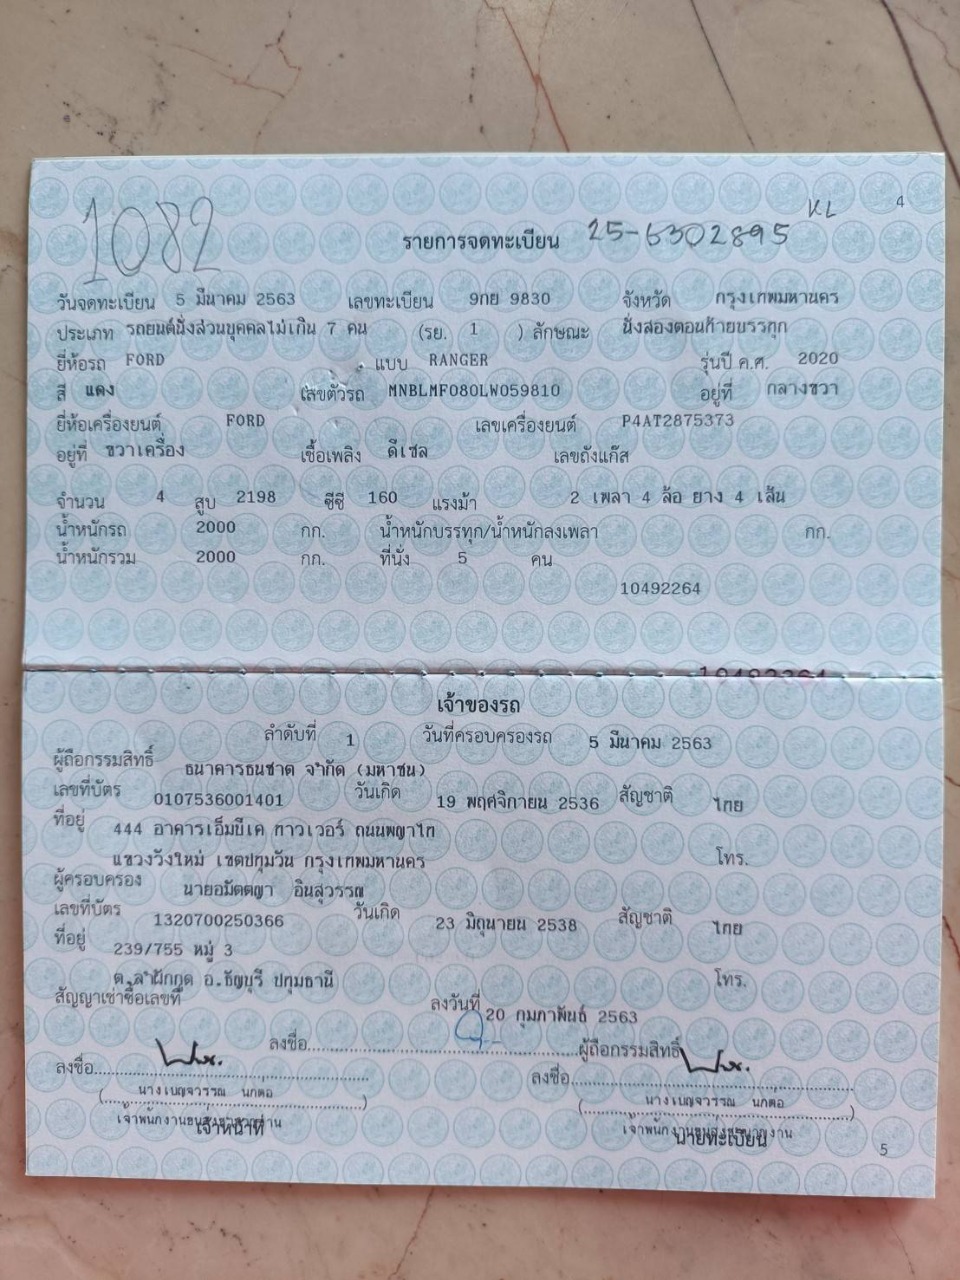 1082
KL
4
รายการจดทะเบียน 25-6302895
วันจดทะเบียน 5 มีนาคม 2563 เลขทะเบียน 9กย 9830 จังหวัด กรุงเทพมหานคร
ประเภท รถยนต์นั่งส่วนบุคคลไม่เกิน 7 คน (รย. 1 ) ลักษณะ นั่งสองตอนท้ายบรรทุก
ยี่ห้อรถ FORD แบบ RANGER รุ่นปี ค.ศ. 2020
สี แดง เลขตัวรถ MNBLMF080LW059810 อยู่ที่ กลางขวา
ยี่ห้อเครื่องยนต์ FORD เลขเครื่องยนต์ P4AT2875373
อยู่ที่ ขวาเครื่อง เชื้อเพลิง ดีเซล เลขถังแก๊ส
จำนวน 4 สูบ 2198 ซีซี 160 แรงม้า 2 เพลา 4 ล้อ ยาง 4 เส้น
น้ำหนักรถ 2000 กก. น้ำหนักบรรทุก/น้ำหนักลงเพลา กก.
น้ำหนักรวม 2000 กก. ที่นั่ง 5 คน
10492264
10492264
เจ้าของรถ
ลำดับที่ 1 วันที่ครอบครองรถ 5 มีนาคม 2563
ผู้ถือกรรมสิทธิ์ ธนาคารธนชาต จำกัด (มหาชน)
เลขที่บัตร 0107536001401 วันเกิด 19 พฤศจิกายน 2536 สัญชาติ ไทย
ที่อยู่ 444 อาคารเอ็มบีเค ทาวเวอร์ ถนนพญาไท
แขวงวังใหม่ เขตปทุมวัน กรุงเทพมหานคร โทร.
ผู้ครอบครอง นายอมัตตญา อินสุวรรณ
เลขที่บัตร 1320700250366 วันเกิด 23 มิถุนายน 2538 สัญชาติ ไทย
ที่อยู่ 239/755 หมู่ 3
ต.ลำผักกูด อ.ธัญบุรี ปทุมธานี โทร.
สัญญาเช่าซื้อเลขที่ ลงวันที่ 20 กุมภาพันธ์ 2563
ลงชื่อ ผู้ถือกรรมสิทธิ์
ลงชื่อ ลงชื่อ
(นางเบญจวรรณ นกตอ) (นางเบญจวรรณ นกตอ)
เจ้าพนักงานขนส่งชำนาญงาน เจ้าพนักงานขนส่งชำนาญงาน
เจ้าหน้าที่ นายทะเบียน
5